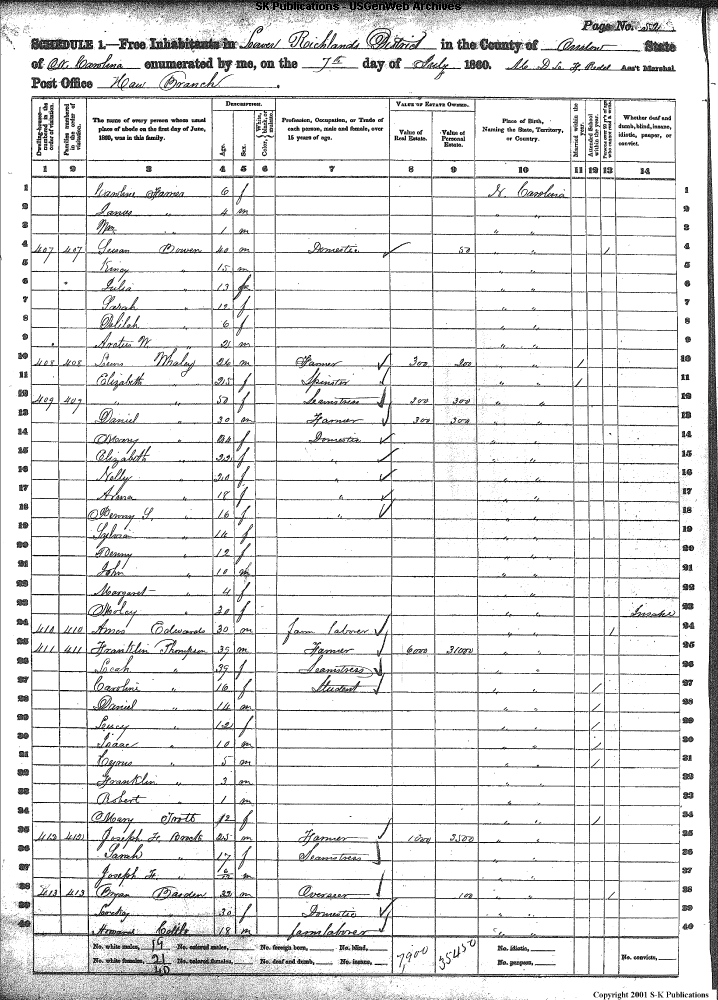 SK Publications - USGenWeb Archives
Page No. 52
SCHEDULE 1.—Free Inhabitants in Lower Richlands District in the County of Onslow State
of N. Carolina enumerated by me, on the 7th day of July 1860. Ass't Marshal.
Post Office Haw Branch.
Dwelling-houses—numbered in the order of visitation.
Families numbered in the order of visitation.
The name of every person whose usual place of abode on the first day of June, 1860, was in this family.
DESCRIPTION.
Age.
Sex.
Color, White, black, or mulatto.
Profession, Occupation, or Trade of each person, male and female, over 15 years of age.
VALUE OF ESTATE OWNED.
Value of Real Estate.
Value of Personal Estate.
Place of Birth, Naming the State, Territory, or Country.
Married within the year.
Attended School within the year.
Whether deaf and dumb, blind, insane, idiotic, pauper, or convict.
1 2 3 4 5 6 7 8 9 10 11 12 13 14
1 6 f N. Carolina 1
2 James " 4 m " " 2
3 " 1 m " " 3
4 407 407 Susan Bowen 40 m Domestic 50 " " / 4
5 " 15 m " " 5
6 Julia " 13 " " 6
7 Sarah " 12 f " " 7
8 Delilah " 6 f " " 8
9 W. " 2 m " " 9
10 408 408 Lewis Whaley 26 m Farmer 300 200 " " / 10
11 Elizabeth " 25 f Spinster " " / 11
12 409 409 " " 50 f Seamstress 200 300 " " 12
13 Daniel " 30 m Farmer 300 300 " " 13
14 Mary " 24 f Domestic " " 14
15 Elizabeth " 22 f " " " 15
16 Nelly " 20 f " " " 16
17 " 18 f " " " 17
18 S. " 16 f " " " 18
19 Sylvia " 14 f " " 19
20 Penny " 12 f " " 20
21 John " 10 m " " 21
22 Margaret " 4 f " " 22
23 30 f " " Insane 23
24 410 410 Amos Edwards 30 m farm laborer " " / 24
25 411 411 Franklin Thompson 39 m Farmer 6000 31000 " " 25
26 " 39 f Seamstress " " 26
27 Caroline " 16 f Student " " / 27
28 Daniel " 14 m " " / 28
29 " 12 f " " / 29
30 Isaac " 10 m " " / 30
31 Cyrus " 5 m " " / 31
32 Franklin " 3 m " " 32
33 Robert " 1 m " " 33
34 Mary Trott 12 f " " / 34
35 412 412 Joseph F. Brock 25 m Farmer 1000 3500 " " 35
36 Sarah " 17 f Seamstress " " 36
37 Joseph F. " m " " 37
38 413 413 Bryan Basden 32 m Overseer 100 " " / 38
39 " 30 f Domestic " " 39
40 Howard 18 m farm laborer " " 40
No. white males, 19 No. colored males, No. foreign born, No. blind, No. idiotic,
No. white females, 21 No. colored females, No. deaf and dumb, No. insane, No. paupers, No. convicts,
40 7,900 35450
Copyright 2001 S-K Publications